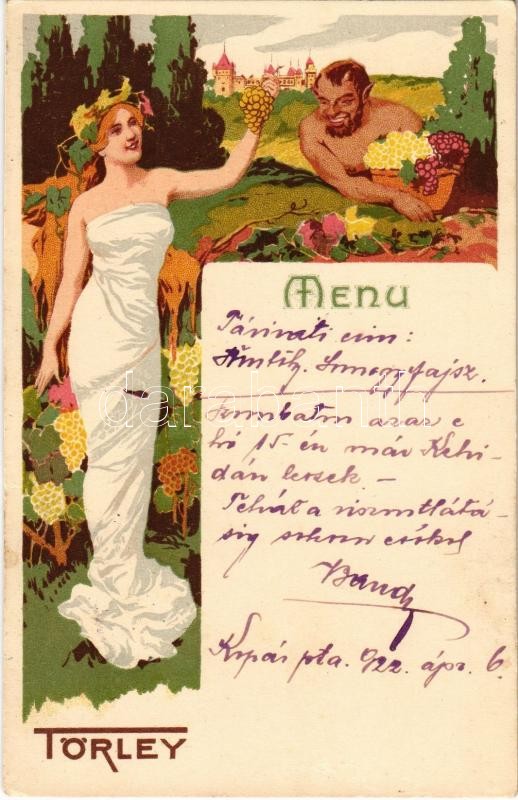 MENU
Távirati cim:
Somogyfajsz.
Szombaton azaz e
hó 15-én már Kehi-
dán leszek. –
Tehát a viszontlátá-
sig sokszor csókol
Bandi
pta. 922. ápr. 6.
TÖRLEY